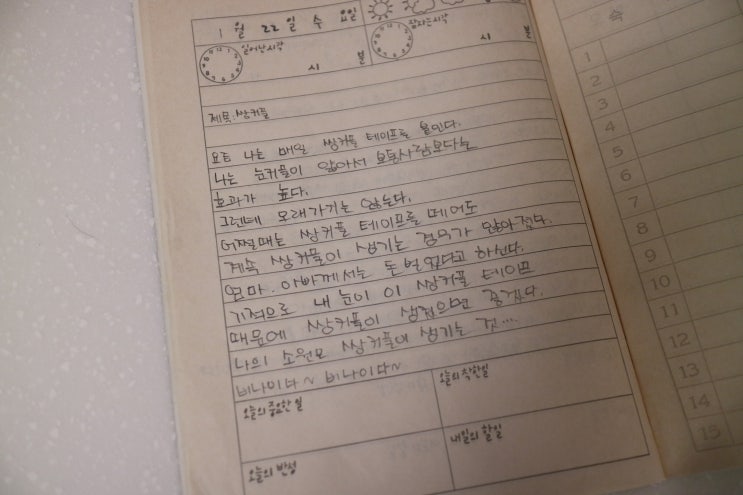 1월 22일 수요일
일어난시각 잠자는시각
시 분 시 분
제목:쌍커풀
요즘 나는 매일 쌍커풀 테이프를 붙인다.
나는 눈커풀이 얇아서 보통사람보다는
효과가 높다.
그런데 오래가기는 않는다.
어쩔때는 쌍커풀 테이프를 떼어도
계속 쌍커풀이 생기는 경우가 많아졌다.
엄마.아빠께서는 돈 벌었다고 하신다.
기적으로 내 눈이 이 쌍커풀 테이프
때문에 쌍커풀이 생겼으면 좋겠다.
나의 소원은 쌍커풀이 생기는 것....
비나이다~ 비나이다~
오늘의 중요한 일 오늘의 착한일
오늘의 반성 내일의 할일
1
2
3
4
5
6
7
8
9
10
11
12
13
14
15